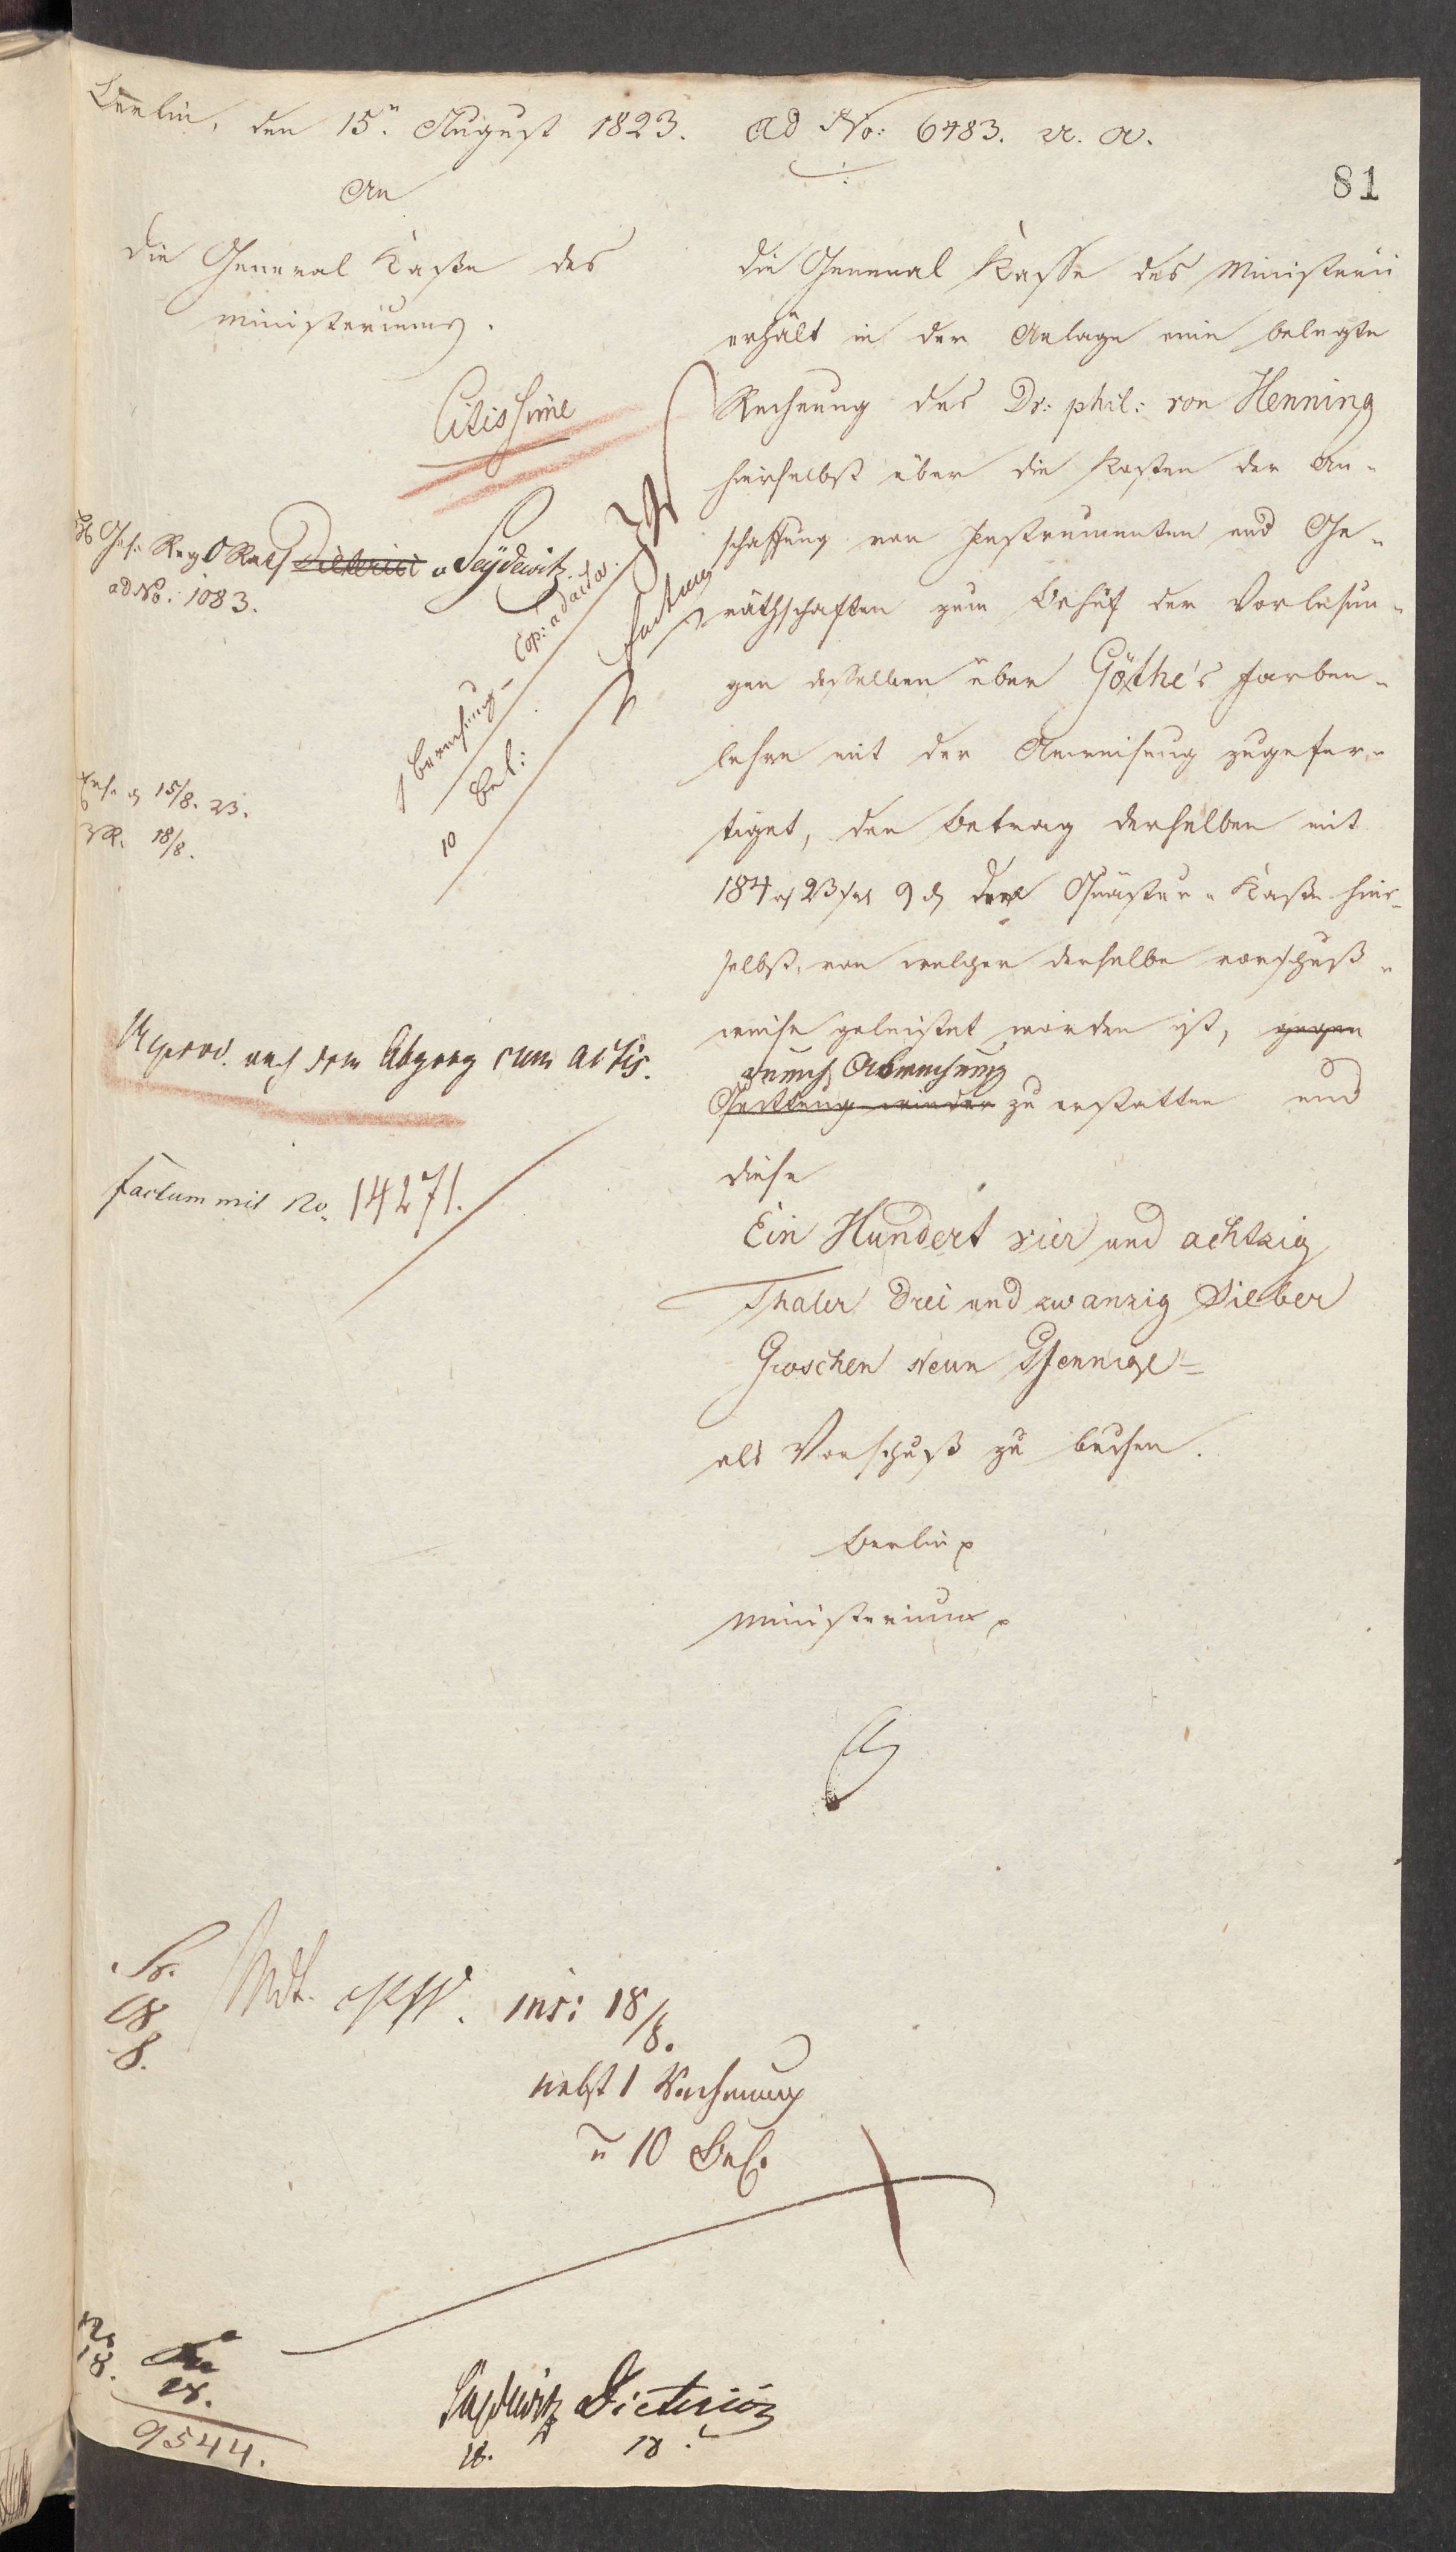 Berlin, den 15n. August 1823.
ad No: 6483. U. A.
81
An
die General Kasse des
Ministeriums.
Citissime
H. Geh. Reg O Rath Dieterici v Seydewitz.
ad No: 1083.
1 Berechnung – cop: ad acta.
10 Bel:
factum
15/8. 23.
18/8.
Reprod. nach dem Abgang cum actis.
factum mit No. 14271.
die General Kasse des Ministerii
erhält in der Anlage eine belegte
Rechnung des Dr: phil: von Henning
hierselbst über die Kosten der An-
schaffung von Instrumenten und Ge-
räthschaften zum Behuf der Vorlesun-
gen desselben über Göthe's Farben-
lehre mit der Anweisung zugefer-
tiget, den Betrag derselben mit
184 rh 23 sgr 9 d der Quästur-Kasse hier-
selbst, von welcher derselbe vorschuß-
weise geleistet worden ist, gegen
durch Abrechnung
Quittung wieder zu erstatten und
diese
Ein Hundert vier und achtzig
Thaler drei und zwanzig Silber
Groschen Neun Pfennige =
als Vorschuß zu buchen.
Berlin
Ministerium
18
8.
Mdt. ins: 18/8.
nebst 1 Rechnung
u 10 Bel.
18.
18.
9544.
Seydewitz Dieterici
18. 18.